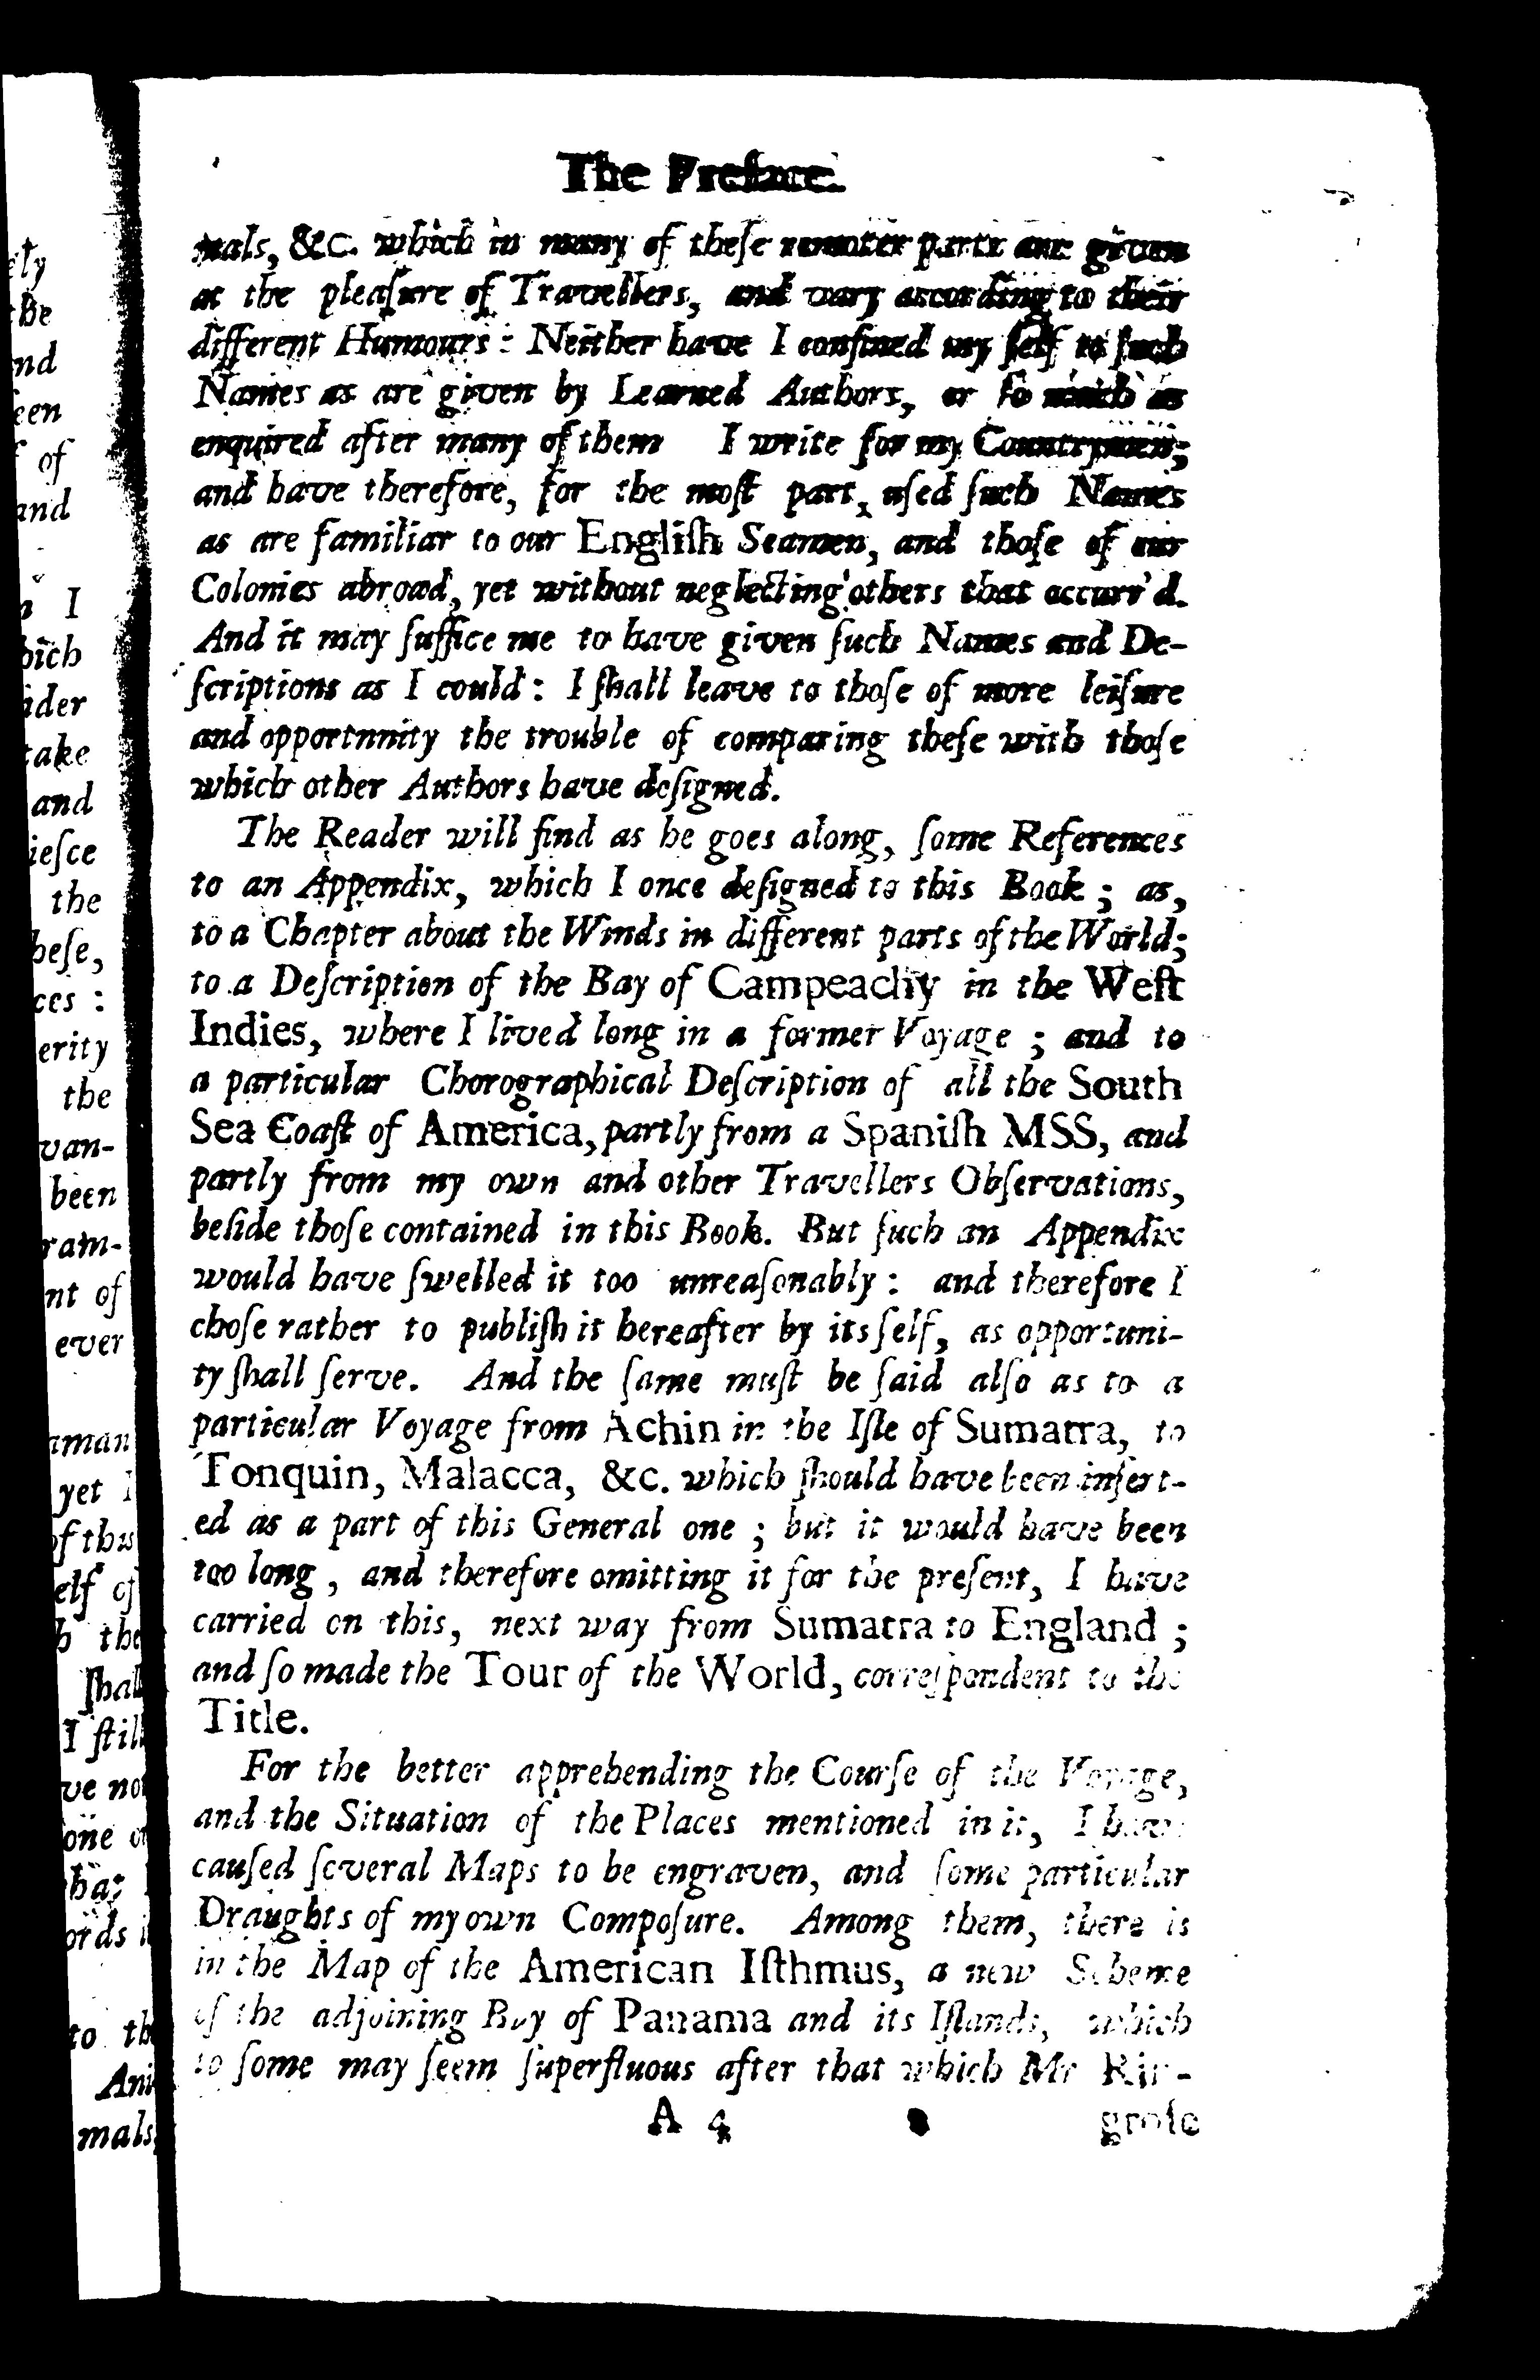 The Preface.
mals, &c. which in many of theſe remoter parts are given
at the pleaſure of Travellers, and vary according to their
different Humours: Neither have I confined my ſelf to ſuch
Names as are given by Learned Authors, or ſo much as
enquired after many of them I write for my Countrymen;
and have therefore, for the moſt part, uſed ſuch Names
as are familiar to our Engliſh Seamen, and thoſe of our
Colonies abroad, yet without neglecting others that occurr'd.
And it may ſuffice me to have given ſuch Names and De-
ſcriptions as I could: I ſhall leave to thoſe of more leiſure
and opportnnity the trouble of comparing theſe with thoſe
which other Authors have deſigned.
The Reader will find as he goes along, ſome References
to an Appendix, which I once deſigned to this Book; as,
to a Chapter about the Winds in different parts of the World;
to a Deſcription of the Bay of Campeachy in the Weſt
Indies, where I lived long in a former Voyage; and to
a particular Chorographical Deſcription of all the South
Sea Coaſt of America, partly from a Spaniſh MSS, and
partly from my own and other Travellers Obſervations,
beſide thoſe contained in this Book. But ſuch an Appendix
would have ſwelled it too unreaſonably: and therefore I
choſe rather to publiſh it hereafter by its ſelf, as opportuni-
ty ſhall ſerve. And the ſame muſt be ſaid alſo as to a
particular Voyage from Achin in the Iſle of Sumatra, to
Tonquin, Malacca, &c. which ſhould have been inſert-
ed as a part of this General one; but it would have been
too long, and therefore omitting it for the preſent, I have
carried on this, next way from Sumatra to England;
and ſo made the Tour of the World, correſpondent to the
Title.
For the better apprehending the Courſe of the Voyage,
and the Situation of the Places mentioned in it, I have
cauſed ſeveral Maps to be engraven, and ſome particular
Draughts of my own Compoſure. Among them, there is
in the Map of the American Iſthmus, a new Scheme
of the adjoining Bay of Panama and its Iſlands, which
to ſome may ſeem ſuperfluous after that which Mr Rin-
A 4
groſe